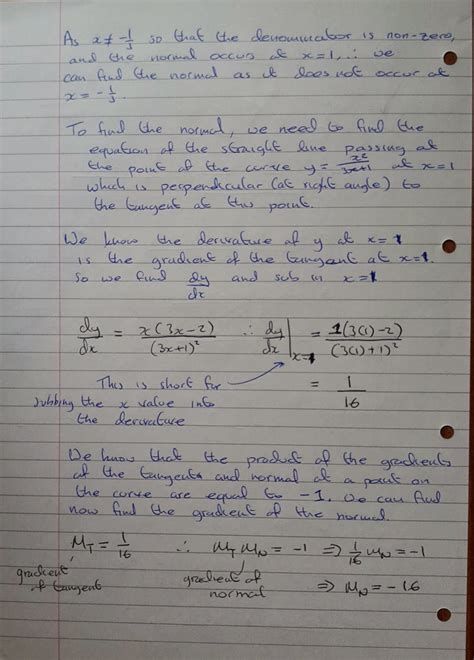 As x ≠ -1/3 so that the denominator is non-zero,
and the normal occurs at x=1, ∴ we
can find the normal as it does not occur at
x = -1/3.
To find the normal, we need to find the
equation of the straight line passing at
the point of the curve y = x²/3x+1 at x=1
which is perpendicular (at right angle) to
the tangent at this point.
We know the derivative of y at x=1
is the gradient of the tangent at x=1.
So we find dy/dx and sub in x=1
dy/dx = x(3x-2)/(3x+1)² ∴ dy/dx |x=1 = 1(3(1)-2)/(3(1)+1)²
This is short for = 1/16
subbing the x value into
the derivative
We know that the product of the gradients
of the tangents and normal at a point on
the curve are equal to -1. We can find
now find the gradient of the normal.
M_T = 1/16 ∴ M_T M_N = -1 ⇒ 1/16 M_N = -1
gradient of tangent
gradient of normal
⇒ M_N = -16